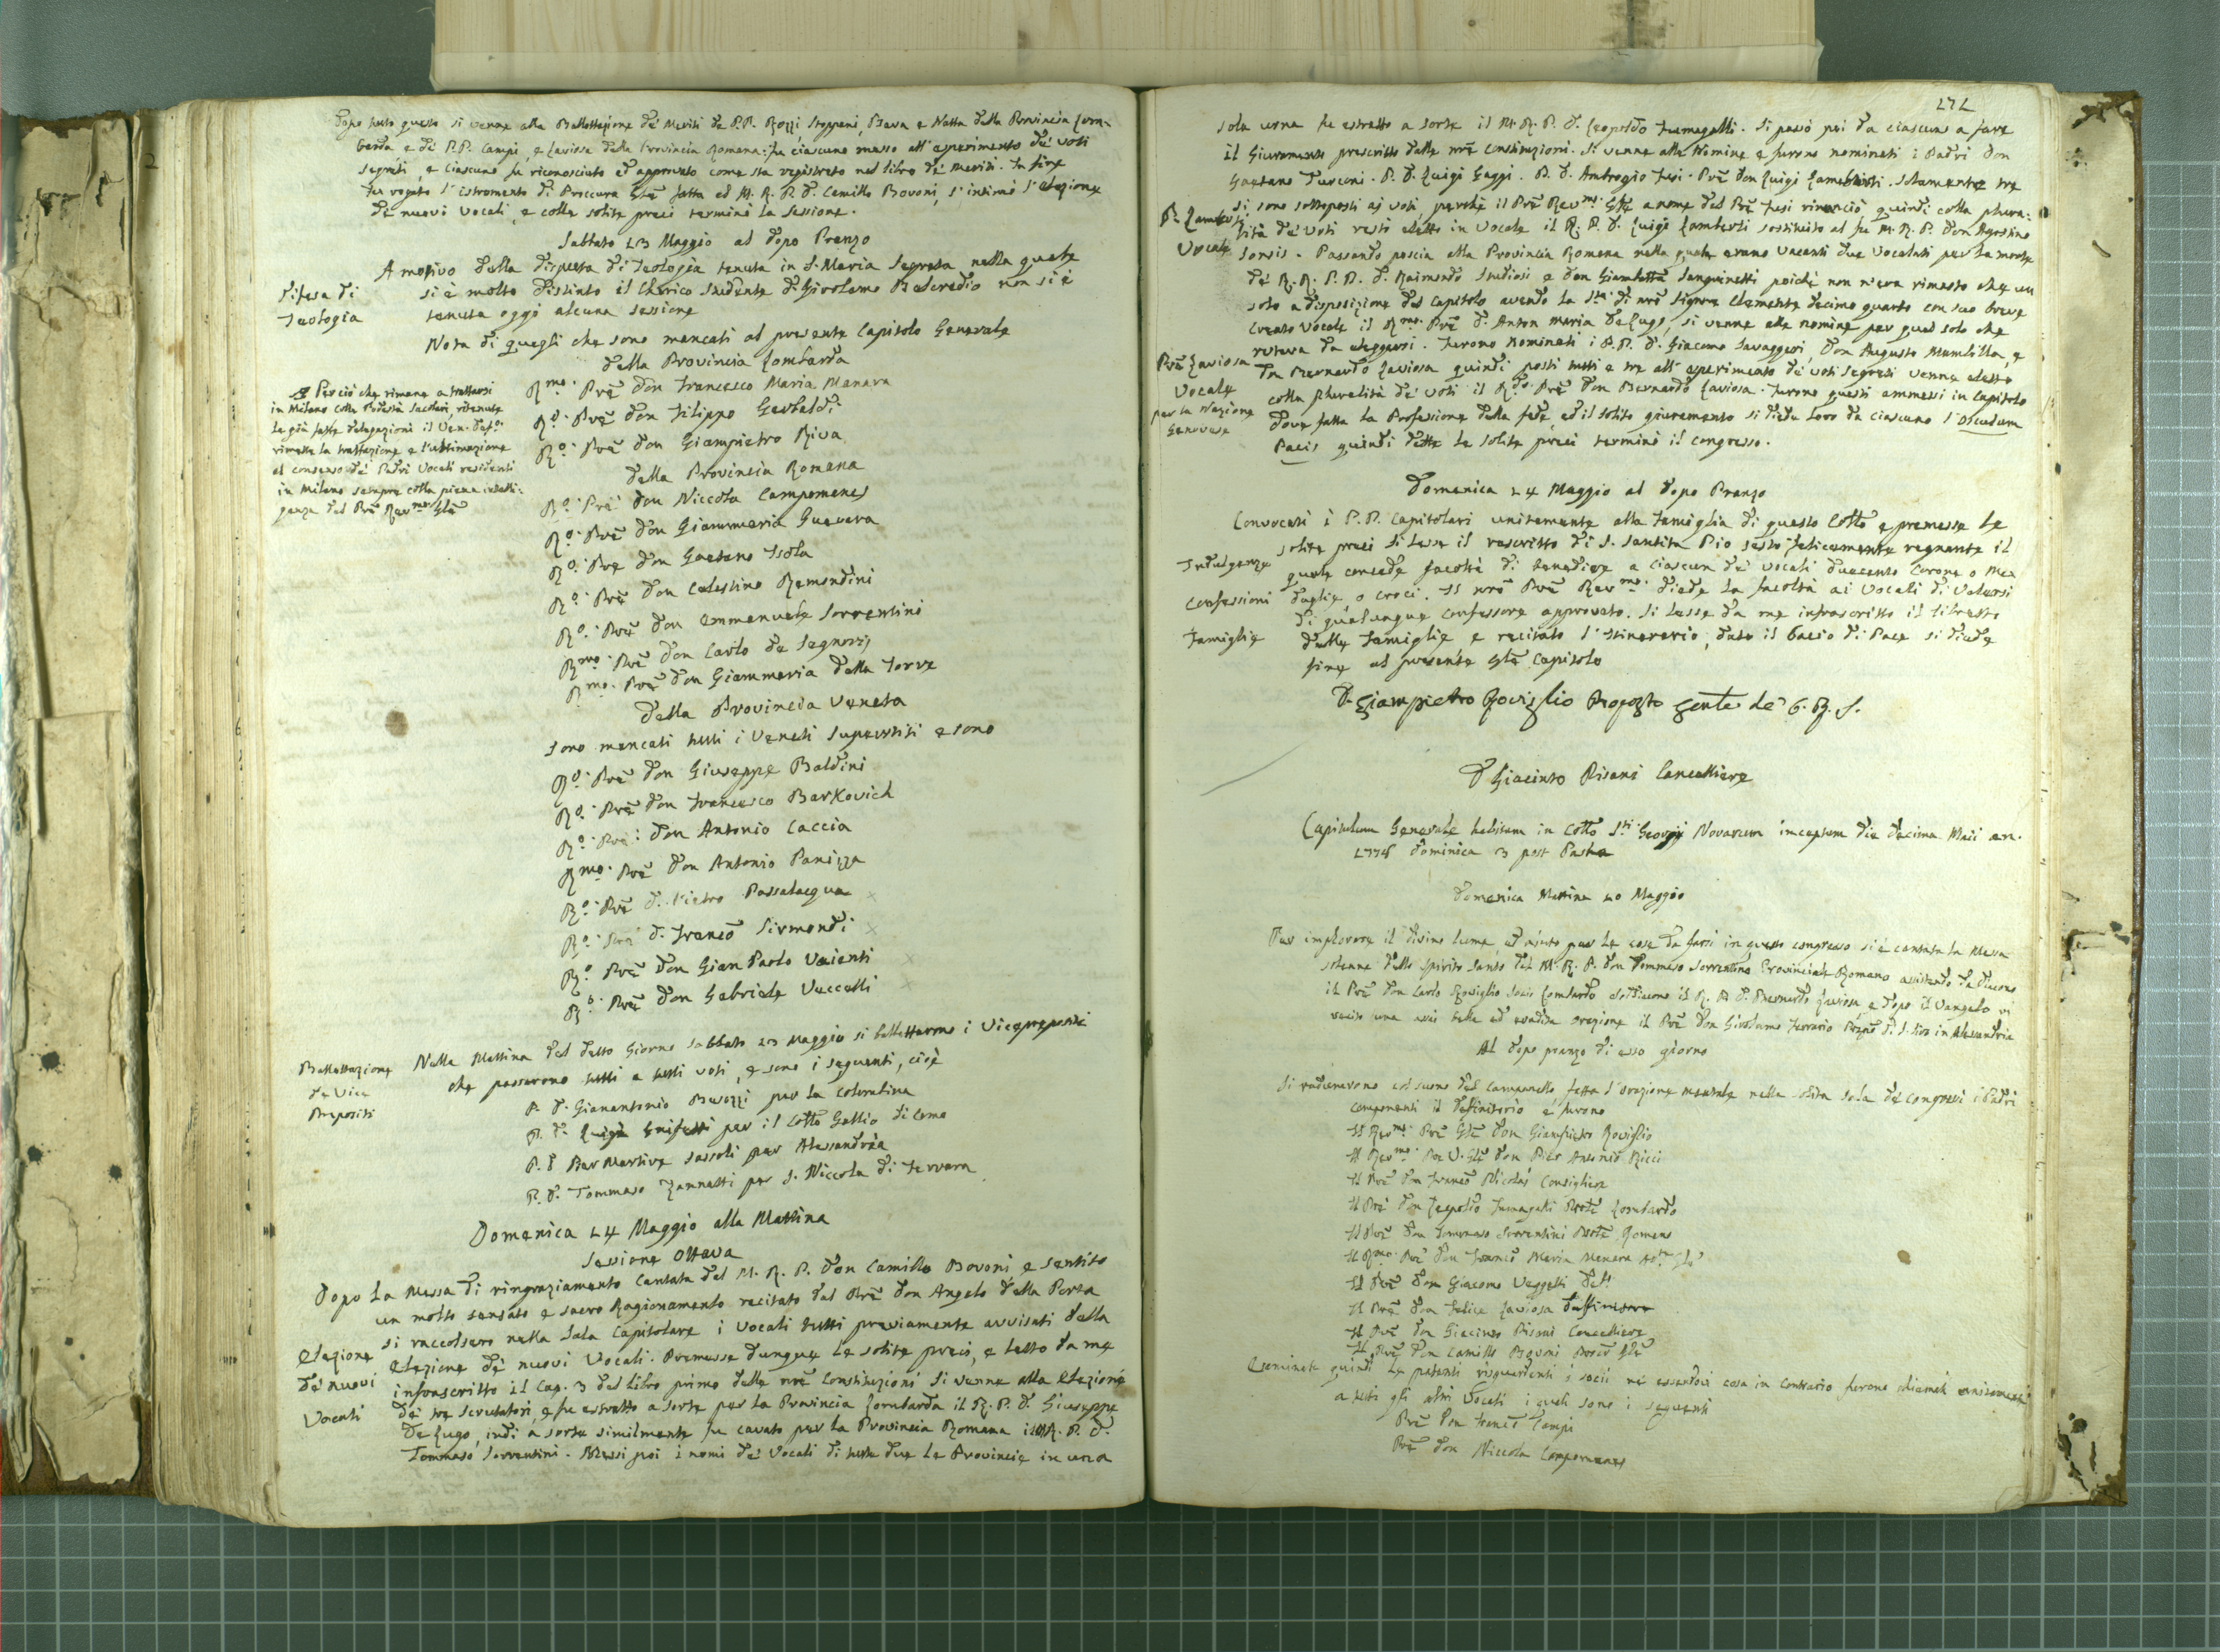 dopo tutto questo si venne alla Ballottazione de' Meriti de P.P. Rozzi, Stoppani, Bava e Natta della Provincia Lom-
barda e de' P.P. Campi, e Laviosa della Provincia Romana: fu ciascuno messo all' esperimento de' voti
segreti, e ciascuno fu riconosciuto ed approvato come sta registrato nel libro de' meriti. In fine
fu rogato l' istromento di Proccura Gñle fatta al M. R. P. D. Camillo Bovoni, s' intimò l' elezione
de nuovi Vocali, e colle solite preci terminò la sessione.
Sabbato 23 Maggio al dopo Pranzo
Difesa di
Teologia
A motivo della disputa di Teologia tenuta in S. Maria Segreta nella quale
si è molto distinto il Cherico studente D. Girolamo Belcredio non si è
tenuta oggi alcuna sessione
Nota di quegli che sono mancati al presente Capitolo Generale
Della Provincia Lombarda
Per ciò che rimane a trattarsi
in Milano colle Podestà Secolari, ritenute
le già fatte delegazioni il Ven. Def.o
rimette la trattazione e l'ultimazione
al consenso de' Padri Vocali residenti
in Milano sempre colla piena intelli-
genza del Prẽ Rev.mo Gñle
R.mo Prẽ Don Francesco Maria Manara
R.o Prẽ don Filippo Gerbaldi
R.o Prẽ don Giampietro Riva
Della Provincia Romana
R.o Prẽ don Niccola Campomenes
R.o Prẽ don Giammaria Guevara
R.o Prẽ don Gaetano Isola
R.o Prẽ don Celestino Remondini
R.o Prẽ don Emmanuele Sorrentini
R.mo Prẽ don Carlo de Segnozzi
R.mo Prẽ don Giammaria della Torre
Della Provincia Veneta
Sono mancati tutti i Veneti Superstiti e sono
R.o Prẽ don Giuseppe Baldini
R.o Prẽ don Francesco Barkovich
R.o Prẽ don Antonio Caccia
R.mo Prẽ don Antonio Panizza
R.o Prẽ D. Pietro Passalacqua x
R.o Prẽ D. Francõ Sirmondi x
R.o Prẽ don Gian Paolo Vaienti x
R.o Prẽ don Gabriele Vecelli x
Ballottazione
de Vice
Prepositi
Nella Mattina del detto Giorno Sabbato 23 Maggio si ballottarono i Vicepreposti
che passarono tutti a tutti voti, e sono i seguenti, cioè
P. D. Gianantonio Bevozzi per la Colombina
P. D. Luigi Grifetti per il Collo Gallio di Como
P. D. Pier Martire Sassoli per Alessandria
P. D. Tommaso Zannetti per S. Niccola di Ferrara
Domenica 24 Maggio alla Mattina
Sessione Ottava
Dopo la Messa di ringraziamento Cantata dal M. R. P. Don Camillo Bovoni e sentito
un molto sensato e sacro Ragionamento recitato dal Prẽ Don Angelo della Porta
si raccolsero nella Sala Capitolare i Vocali tutti previamente avvisati della
Elezione
de' nuovi
Vocali
Elezione de' nuovi Vocali. Premesse dunque le solite preci, e letto da me
infrascritto il Cap. 3 del libro primo delle nr̃e Constituzioni si venne alla Elezione
de' tre Scrutatori, e fu estratto a sorte per la Provincia Lombarda il R. P. D. Giuseppe
De Lugo, indi a sorte similmente fu cavato per la Provincia Romana il M. R. P. D.
Tommaso Sorrentini. Messi poi i nomi de' Vocali di tutte due le Provincie in una
272
sola urna fu estratto a sorte il M. R. P. D. Leopoldo Fumagalli. Si passò poi da ciascuno a fare
il Giuramento prescritto dalle nr̃e Constituzioni. Si venne alla Nomine e furono nominati i Padri Don
Gaetano Turconi. P. D. Luigi Gaggi. P. D. Ambrogio Fusi. Prẽ Don Luigi Lamberti. Solamente tre
si sono sottoposti ai voti, perchè il Prẽ Rev.mo Gñle a nome del Prẽ Fusi rinonciò quindi colla plura-
P. Lamberti
Vocale
lità de' Voti restò eletto in Vocale il R. P. D. Luigi Lamberti sostituito al fu M. R. P. Don Agostino
Sorsis. Passando poscia alla Provincia Romana nella quale erano vacanti due Vocalati per la morte
de' R. R. P. P. D. Raimondo Studiosi e Don Giambattã Sanguinetti poichè non n'era rimasto che un
solo a disposizione del Capitolo avendo la S.tà di nr̃o Signore Clemente decimo quarto con suo breve
creato Vocale il R.mo Prẽ D. Anton Maria De Lugo, si venne alle nomine per quel solo che
Prẽ Laviosa
Vocale
per la Nazione
Genovese
restava da eleggersi. Furono Nominati i P.P. D. Giacomo Savaggeri, Don Augusto Mumbilla, e
Don Bernardo Laviosa quindi posti tutti e tre all' esperimento de' voti segreti venne eletto
colla pluralità de' voti il R.do Prẽ Don Bernardo Laviosa. Furono questi ammessi in Capitolo
dove fatta la Professione della fede, ed il solito giuramento si diede loro da ciascuno l'Osculum
Pacis quindi dette le solite preci terminò il congresso.
Domenica 24 Maggio al dopo Pranzo
Convocati i P. P. Capitolari unitamente alla famiglia di questo Collo e premesse le
Indulgenze
solite preci si lesse il rescritto di S. Santità Pio Sesto felicemente regnante il
quale concede facoltà di benedire a ciascun de' vocali duecento Corone o Me-
Confessioni
daglie o croci. Il nr̃o Prẽ Rev.mo diede la facoltà ai Vocali di Valersi
di qualunque confessore approvato. Si lesse da me infrascritto il libretto
Famiglie
delle famiglie e recitato l' Itinerario, dato il bacio di Pace si diede
fine al presente Gñle Capitolo
D. Giampietro Roviglio Proposto Genle de' C. R. S.
D Giacinto Pisani Cancelliere
Capitulum Generale habitum in Collo S.ti Georgij Novarum inceptum die decima Maii an.
1778 dominica 3 post Pasha
Domenica Mattina 10 Maggio
Per implorare il divino lume, ed aiuto per le cose da farsi in questo congresso si è cantata la Messa
solenne dello Spirito Santo dal M. R. P. Don Tommaso Sorrentino Provinciale Romano assistendo da diacono
il Prẽ Don Carlo Roviglio Socio Lombardo e soddiacono il R. P. D. Bernardo Laviosa, e dopo il Vangelo vi
recitò una assai bella ed erudita orazione il Prẽ Don Girolamo Ferrario di S. Siro in Alessandria
Al dopo pranzo di esso giorno
Si radunarono col suono del campanello fatta l'orazione mentale nella solita sala de' congressi i Padri
componenti il Definitorio e furono
Il Rev.mo Prẽ Gñle Don Giampietro Roviglio
Il Rev.mo Prẽ V. Gñle Don Pier Antonio Ricci
Il Prẽ Don Francõ Nicolai Consigliere
Il Prẽ Don Leopoldo Fumagalli Prov̄le Lombardo
Il Prẽ Don Tommaso Sorrentini Prov̄le Romano
Il R.mo Prẽ Don Francõ Maria Manara
Il Prẽ Don Giacomo Veggetti Def.
Il Prẽ Don Felice Laviosa Diffinitore
Il Prẽ Don Giacinto Pisani Cancelliere
Il Prẽ Don Camillo Bovoni Procõr Gñle
Esaminate quindi le patenti risguardanti i socii nè essendoci cosa in Contrario furono chiamati unitamente
a tutti gli altri Vocali i quali sono i seguenti
Prẽ Don Francõ Campi
Prẽ Don Niccola Campomenes